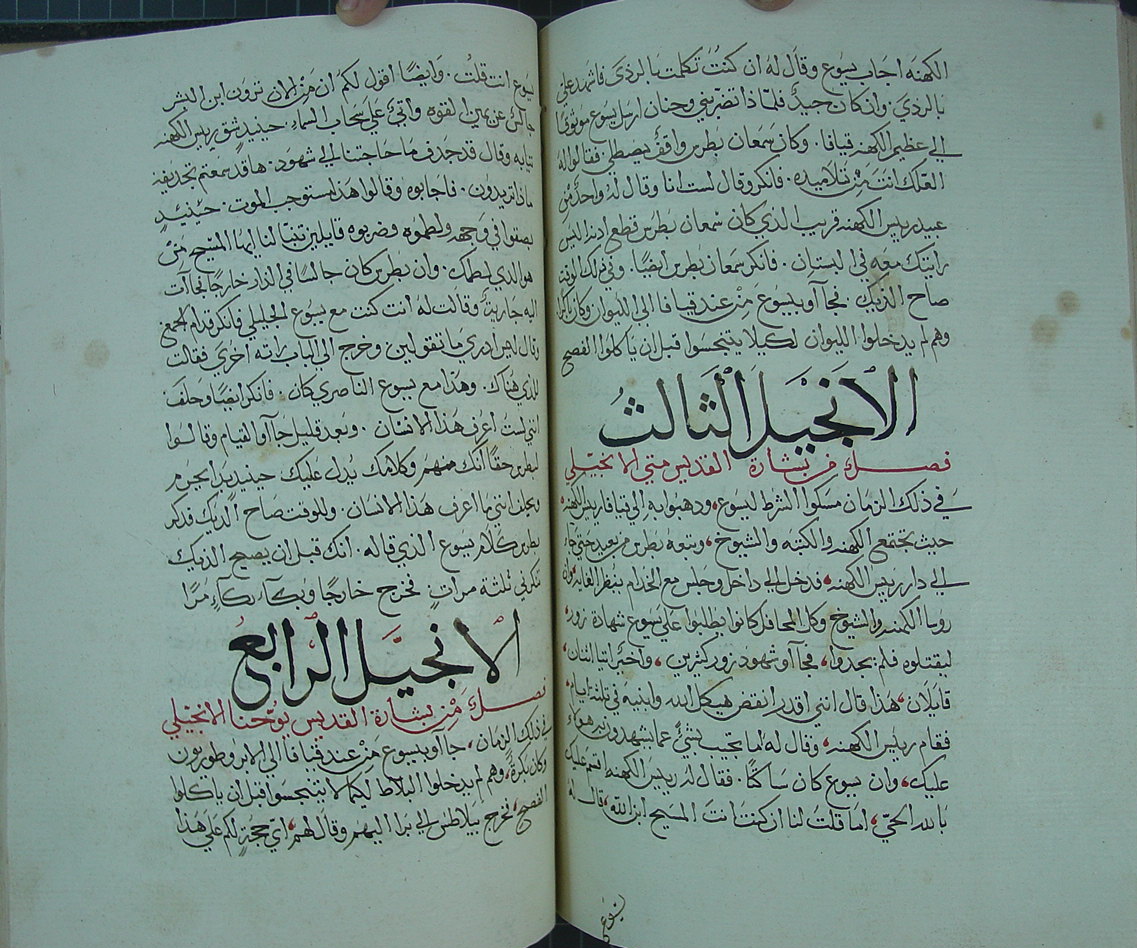 الكهنه اجاب يسوع وقال له ان كنت تكلمت بالردى فاشهد علي
بالردي وان كان جيد فلماذا تضربني وحنان ارسل يسوع موثوقا
الى عظيم الكهنه قيافا . وكان سمعان بطرس واقف يصطلي . فقالوا له
لعلك انت من تلاميذه . فانكر وقال لست انا وقال له واحد من
عبيد رييس الكهنه قريب الذي كان شمعان بطرس قطع ادنه اليس
رايتك معه في البستان . فانكر سمعان بطرس ايضا . وفي ذلك الوقت
صاح الديك فجآاو بيسوع من عند قيافا الى الليوان وكان باكرا
وهم لم يدخلوا الليوان لكيلا يتنجسوا قبل ان ياكلوا الفصح
الانجيل الثالث
فصل من بشارة القديس متي الانجيلي
في ذلك الزمان مسكوا الشرط ليسوع ودهبوا به الى قيافا رييس الكهنه
حيث تجتمع الكهنه والكتبه والشيوخ وتبعه بطرس من بعيد حتي جاء
الى دار رييس الكهنه فدخل الى داخل وجلس مع الخدام ينظر الغايه وان
روسا الكهنه والشيوخ وكل المحافل كانوا يطلبوا على يسوع شهادة زور
ليقتلوه فلم يجدوا فجآاو شهود زور كثيرين واخيرا اتيا اتنان
قايلان هذا قال انني اقدر انقض هيكل الله وابنيه في تلثة ايام
فقام رييس الكهنه وقال له اما تجيب بشيء عما يشهدون به هولاء
عليك وان يسوع كان ساكتا . فقال له رييس الكهنه اقسم عليك
بالله الحي اما قلت لنا ان كنت انت المسيح ابن الله قال له
يسوع
يسوع انت قلت . وايضا اقول لكم ان من الان ترون ابن البشر
جالس عن يمين القوه واتي على سحاب السماء . حينيد شق رييس الكهنه
تيابه وقال قد جدف ما حاجتنا الى شهود . ها قد سمعتم تجديفه
ماذا تريدون . فاجابوه وقالوا هذا مستوجب الموت . حينيد
بصقوا في وجهه ولطموه وضربوه قايلين تنبا لنا ايها المسيح من
هو الذي لطمك . وان بطرس كان جالسا في الدار خارجا فجآات
اليه جاريه وقالت له انت كنت مع يسوع الجليلي فانكر قدام الجمع
وقال ليس ادري ما تقولين وخرج الى الباب راته اخرى فقالت
للذي هناك . وهذا مع يسوع الناصري كان . فانكر ايضا وحلف
انني لست اعرف هذا الانسان . وبعد قليل جآاو القيام وقالوا
لبطرس حقا انك منهم وكلامك يدل عليك حينيد بدا يحرم
ويحلف انني ما اعرف هذا الانسان . وللوقت صاح الديك فدكر
بطرس كلام يسوع الذي قاله . انك قبل ان يصيح الديك
تنكرني ثلثة مرات فخرج خارجا وبكآء بكآء مرا
الانجيل الرابع
فصل من بشارة القديس يوحنا الانجيلي
في ذلك الزمان جآاو بيسوع من عند قيافا الى الابروطوريون
وكان بكرة وهم لم يدخلوا البلاط لكيما لا يتنجسوا قبل ان ياكلوا
الفصح فخرج بيلاطس الى برا اليهم وقال لهم اي حجة لكم علي هذا